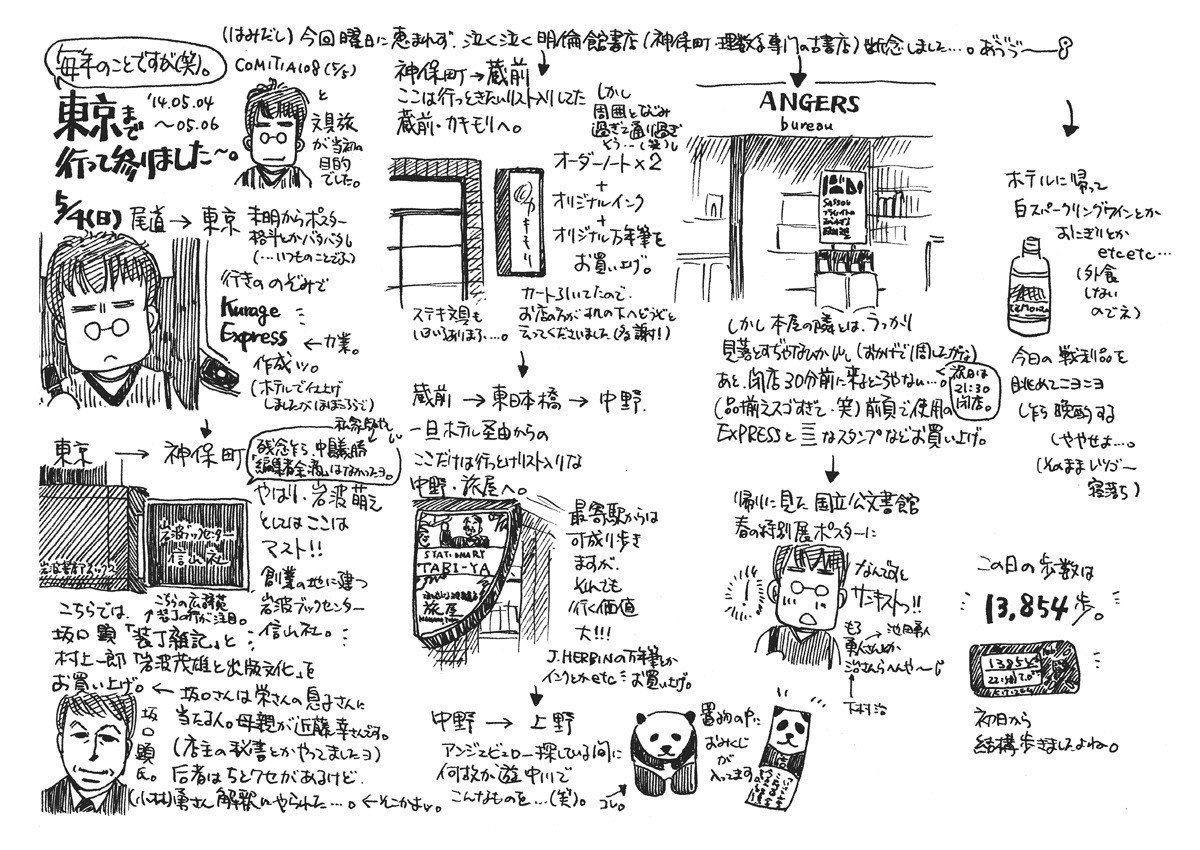 (はみだし) 今回曜日に恵まれず、泣く泣く明倫館書店(神保町・理数系専門の古書店)断念しました…。あゔゔ〜
毎年のことですが(笑)。
東京まで
'14.05.04
〜05.06
行って参りました〜。
COMITIA108 (5/5)
と
文具旅
が当初の
目的
でした。
5/4(日) 尾道→東京
未明からポスター
格斗とかバタバタし
(…いつものことでふ)
行きののぞみで
Kurage
Express
←力業。
作成ッ。
(ホテルで仕上げ
しましたが
東京→神保町
残念ながら、中
はなかったヨ。
やはり、岩波萌え
としてはここは
マスト!!
創業の地に建つ
岩波ブックセンター
信山社。
岩波ブックセンター
信山社
こちらの広辞苑
装丁の灯が注目。
こちらでは、
坂口顕「装丁雑記」と
村上一郎「岩波茂雄と出版文化」を
お買い上げ。
←坂口さんは栄さんの息子さんに
当たる人。母親が近藤幸さんです。
(店主の秘書とかやってましたヨ)
后者はちとクセがあるけど、
(小林)勇さん解釈にやられた…。←そこかよッ。
坂口顕氏。
神保町→蔵前
ここは行っときたいリスト入りしてた
蔵前・カキモリへ。
しかし
周囲となじみ
過ぎて通り過ぎ
そう…(笑)し
カキモリ
オーダーノート×2
+
オリジナルインク
+
オリジナル万年筆を
お買い上げ。
ステキ文具も
いろいろありまふ…。
カートろいてたので、
お店の方が
云ってくださいました(多謝!)
蔵前→東日本橋→中野。
一旦ホテル経由からの
ここだけは行っとけリスト入りな
中野・旅屋へ。
STATIONARY
TABI-YA
旅屋
最寄駅からは
可成り歩き
ますが、
それでも
行く価値
大!!!
J.HERBINの万年筆とか
インクとかetc…お買い上げ。
中野→上野
アンジェビュロー探している間に
何故か 中川で
こんなものを…(笑)。
コレ。
置物の中に
おみくじ
が
入ってます。
ANGERS
bureau
しかし本屋の隣とは、うっかり
見落とすぢゃないかいし(おかげで1周したがな)
あと、閉店30分前に来るところやない…。
←祝日は
21:30
閉店。
(品揃えスゴすぎて・笑) 前頁で使用の
EXPRESSと三なスタンプなどお買い上げ。
帰りに見た国立公文書館
春の特別展ポスターに
!
なんですと
サーキストっ!!
もう
勇人さんとか
治さんらへんや〜し
池田勇人
下村治
ホテルに帰って
白スパークリングワインとか
おにぎりとか
etcetc…
(外食
しない
のでネ)
今日の戦利品を
眺めてニヨニヨ
しながら晩酌する
しやせよ…。
(そのまま
寝落ち)
この日の歩数は
13,854歩。
13854
初日から
結構歩きましたよね。